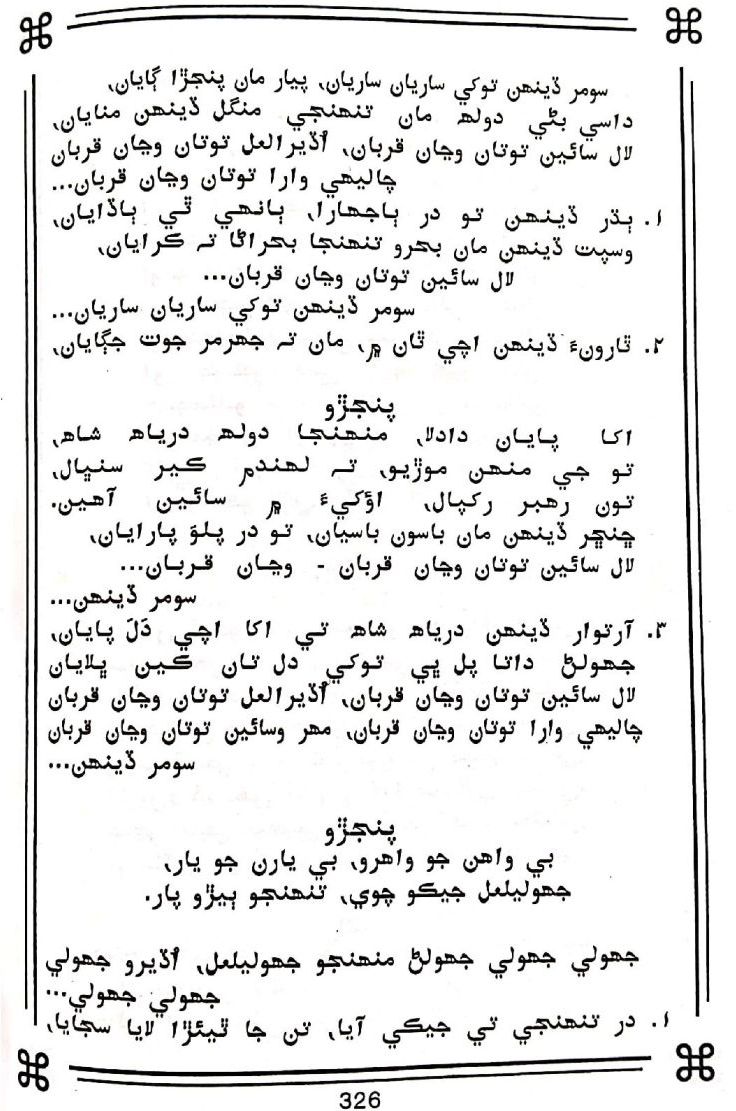 سومر ڏينهن توکي ساريان ساريان، پيار مان پنجڙا ڳايان،
داسي بڻي دولھ مان تنهنجي منگل ڏينهن منايان،
لال سائين توتان وڃان قربان، اُڏيرالعل توتان وڃان قربان
چاليهي وارا توتان وڃان قربان...
۱. ٻڌر ڏينهن تو در ٻاجهارا، ٻانهي ٿي ٻاڏايان،
وسپت ڏينهن مان بحرو تنهنجا بحراڻا تہ ڪرايان،
لال سائين توتان وڃان قربان...
سومر ڏينهن توکي ساريان ساريان...
۲. ٿارونءَ ڏينهن اچي ٿان ۾، مان تہ جهرمر جوت جڳايان،
پنجڙو
اکا پايان دادلا، منهنجا دولھ درياھ شاھ،
تو جي منهن موڙيو، تہ لهندم ڪير سنڀال،
تون رهبر رکپال، اؤکيءَ ۾ سائين آهين.
ڇنڇر ڏينهن مان باسون باسيان، تو در پلوَ پارايان،
لال سائين توتان وڃان قربان - وڃان قربان...
سومر ڏينهن...
۳. آرتوار ڏينهن درياھ شاھ تي اکا اچي دَلَ پايان،
جهولڻ داتا پل ڀي توکي دل تان ڪين ڀلايان
لال سائين توتان وڃان قربان، اُڏيرالعل توتان وڃان قربان
چاليهي وارا توتان وڃان قربان، مهر وسائين توتان وڃان قربان
سومر ڏينهن...
پنجڙو
بي واهن جو واهرو، بي يارن جو يار،
جهوليلعل جيڪو چوي، تنهنجو ٻيڙو پار.
جهولي جهولي جهولڻ منهنجو جهوليلعل، اُڏيرو جهولي
جهولي جهولي...
۱. در تنهنجي تي جيڪي آيا، تن جا ٿيئڙا لايا سجايا،
326